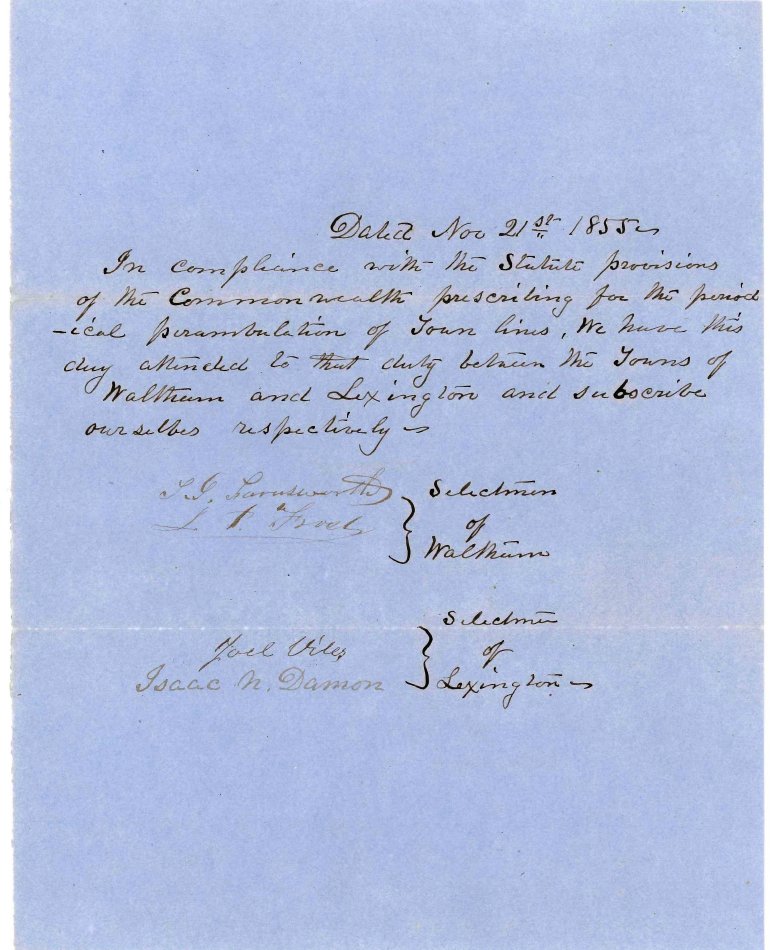 Dated Nov 21st 1855
In compliance with the Statute provisions
of the Commonwealth prescribing for the period
-ical perambulation of Town lines, We have this
day attended to that duty between the Towns of
Waltham and Lexington and subscribe
ourselves respectively
Farnsworth
L P Frost
Selectmen
of
Waltham
Joel Viles
Isaac N. Damon
Selectmen
of
Lexington